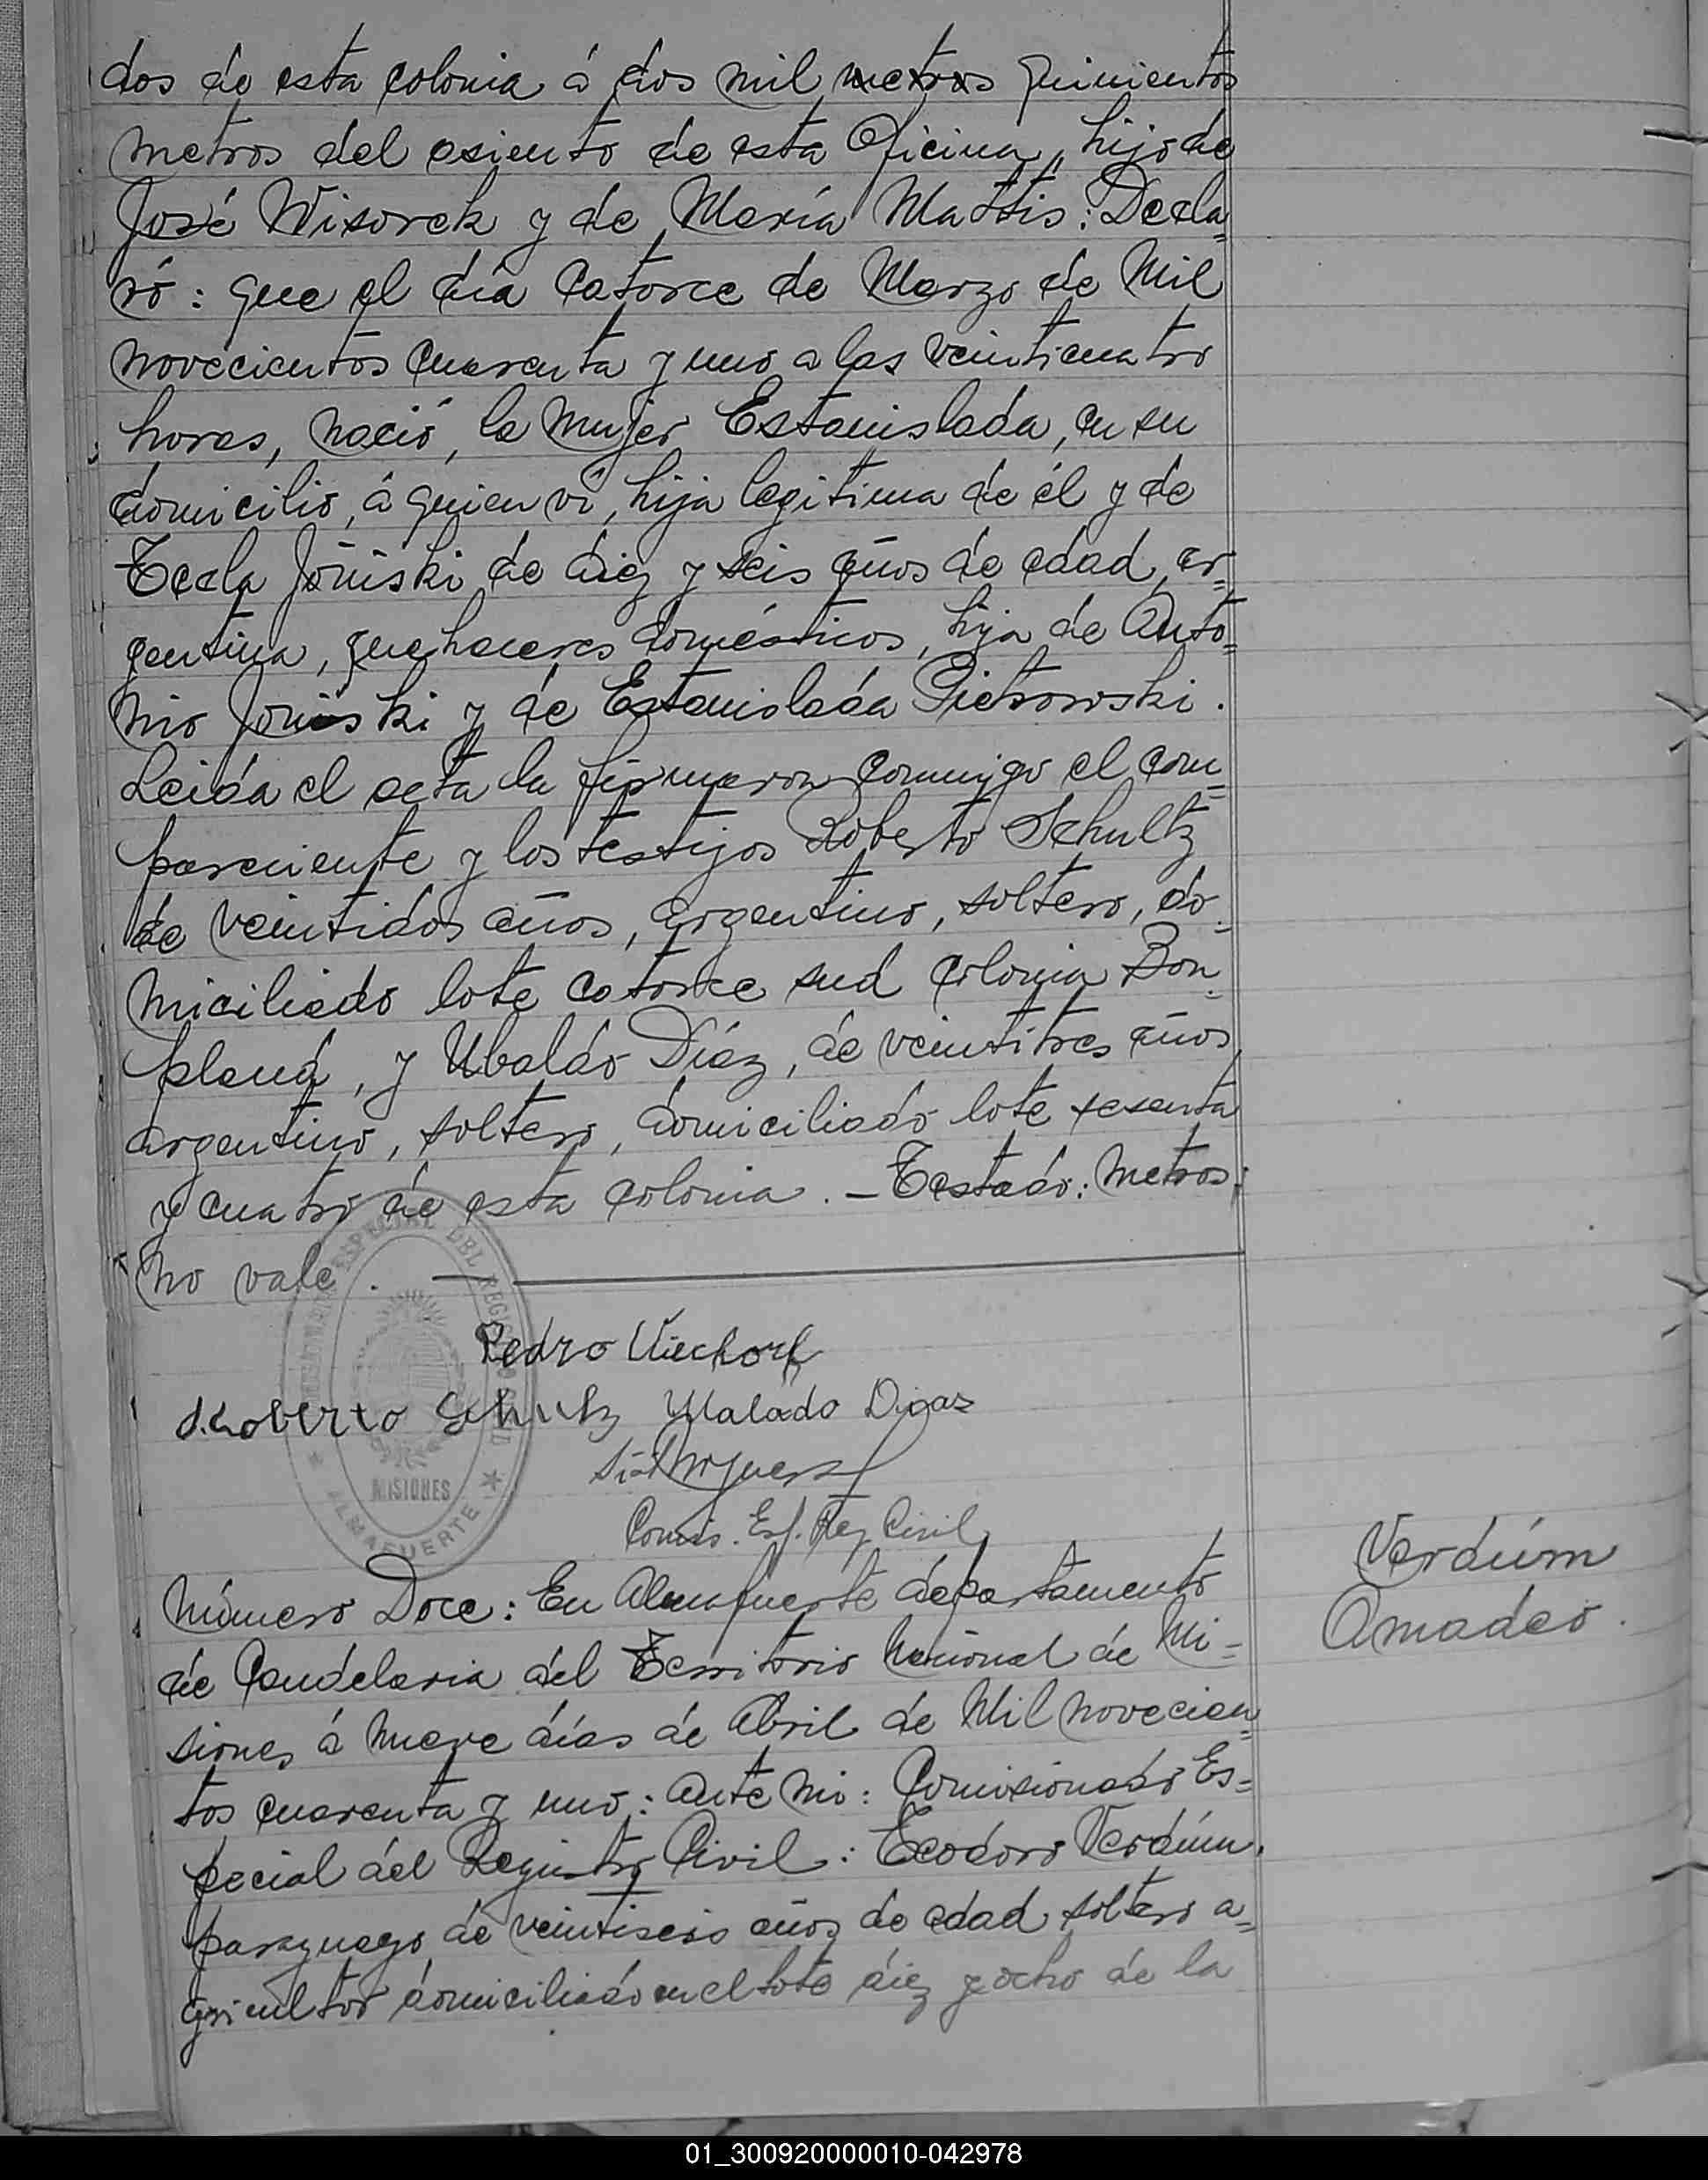 dos de esta colonia á dos mil metros quinientos
metros del asiento de esta Oficina, hijo de
José Wisorek y de María Mattis: Decla=
ró: que el día catorce de Marzo de Mil
novecientos cuarenta y uno a las veinticuatro
horas, nació, la mujer Estanislada, en su
domicilio, á quien ví, hija legitima de él y de
Tecla Joñiski de diez y seis años de edad, ar=
gentina, quehaceres domésticos, hija de Anto=
nio Joniski y de Estanislada Pietrowski.
Leida el acta la firmaron conmigo el com=
pareciente y los testijos Roberto Schultz
de veintidos años, argentino, soltero, do=
miciliado lote catorce sud colonia Bon=
pland, y Ubaldo Díaz, de veintitres años
argentino, soltero, domiciliado lote sesenta
y cuatro de esta colonia. — Testado: metros:
no vale. —
Pedro Viechork
Roberto Schultz Ubaldo Diaz
Comis. Esp. Reg Civil
ESPECIAL DEL REGISTRO CIVIL
MISIONES
ALMAFUERTE
Verdúm
Amadeo.
Número Doce: En Almafuerte departamento
de Candelaria del Territorio Nacional de Mi=
siones á nueve días de Abril de Mil novecien=
tos cuarenta y uno: ante mi: Comisionado Es=
pecial del Registro Civil: Teodoro Verdúm.
paraguayo de veintiseis años de edad soltero a=
gricultor domiciliado en el lote diez y ocho de la
01_300920000010-042978